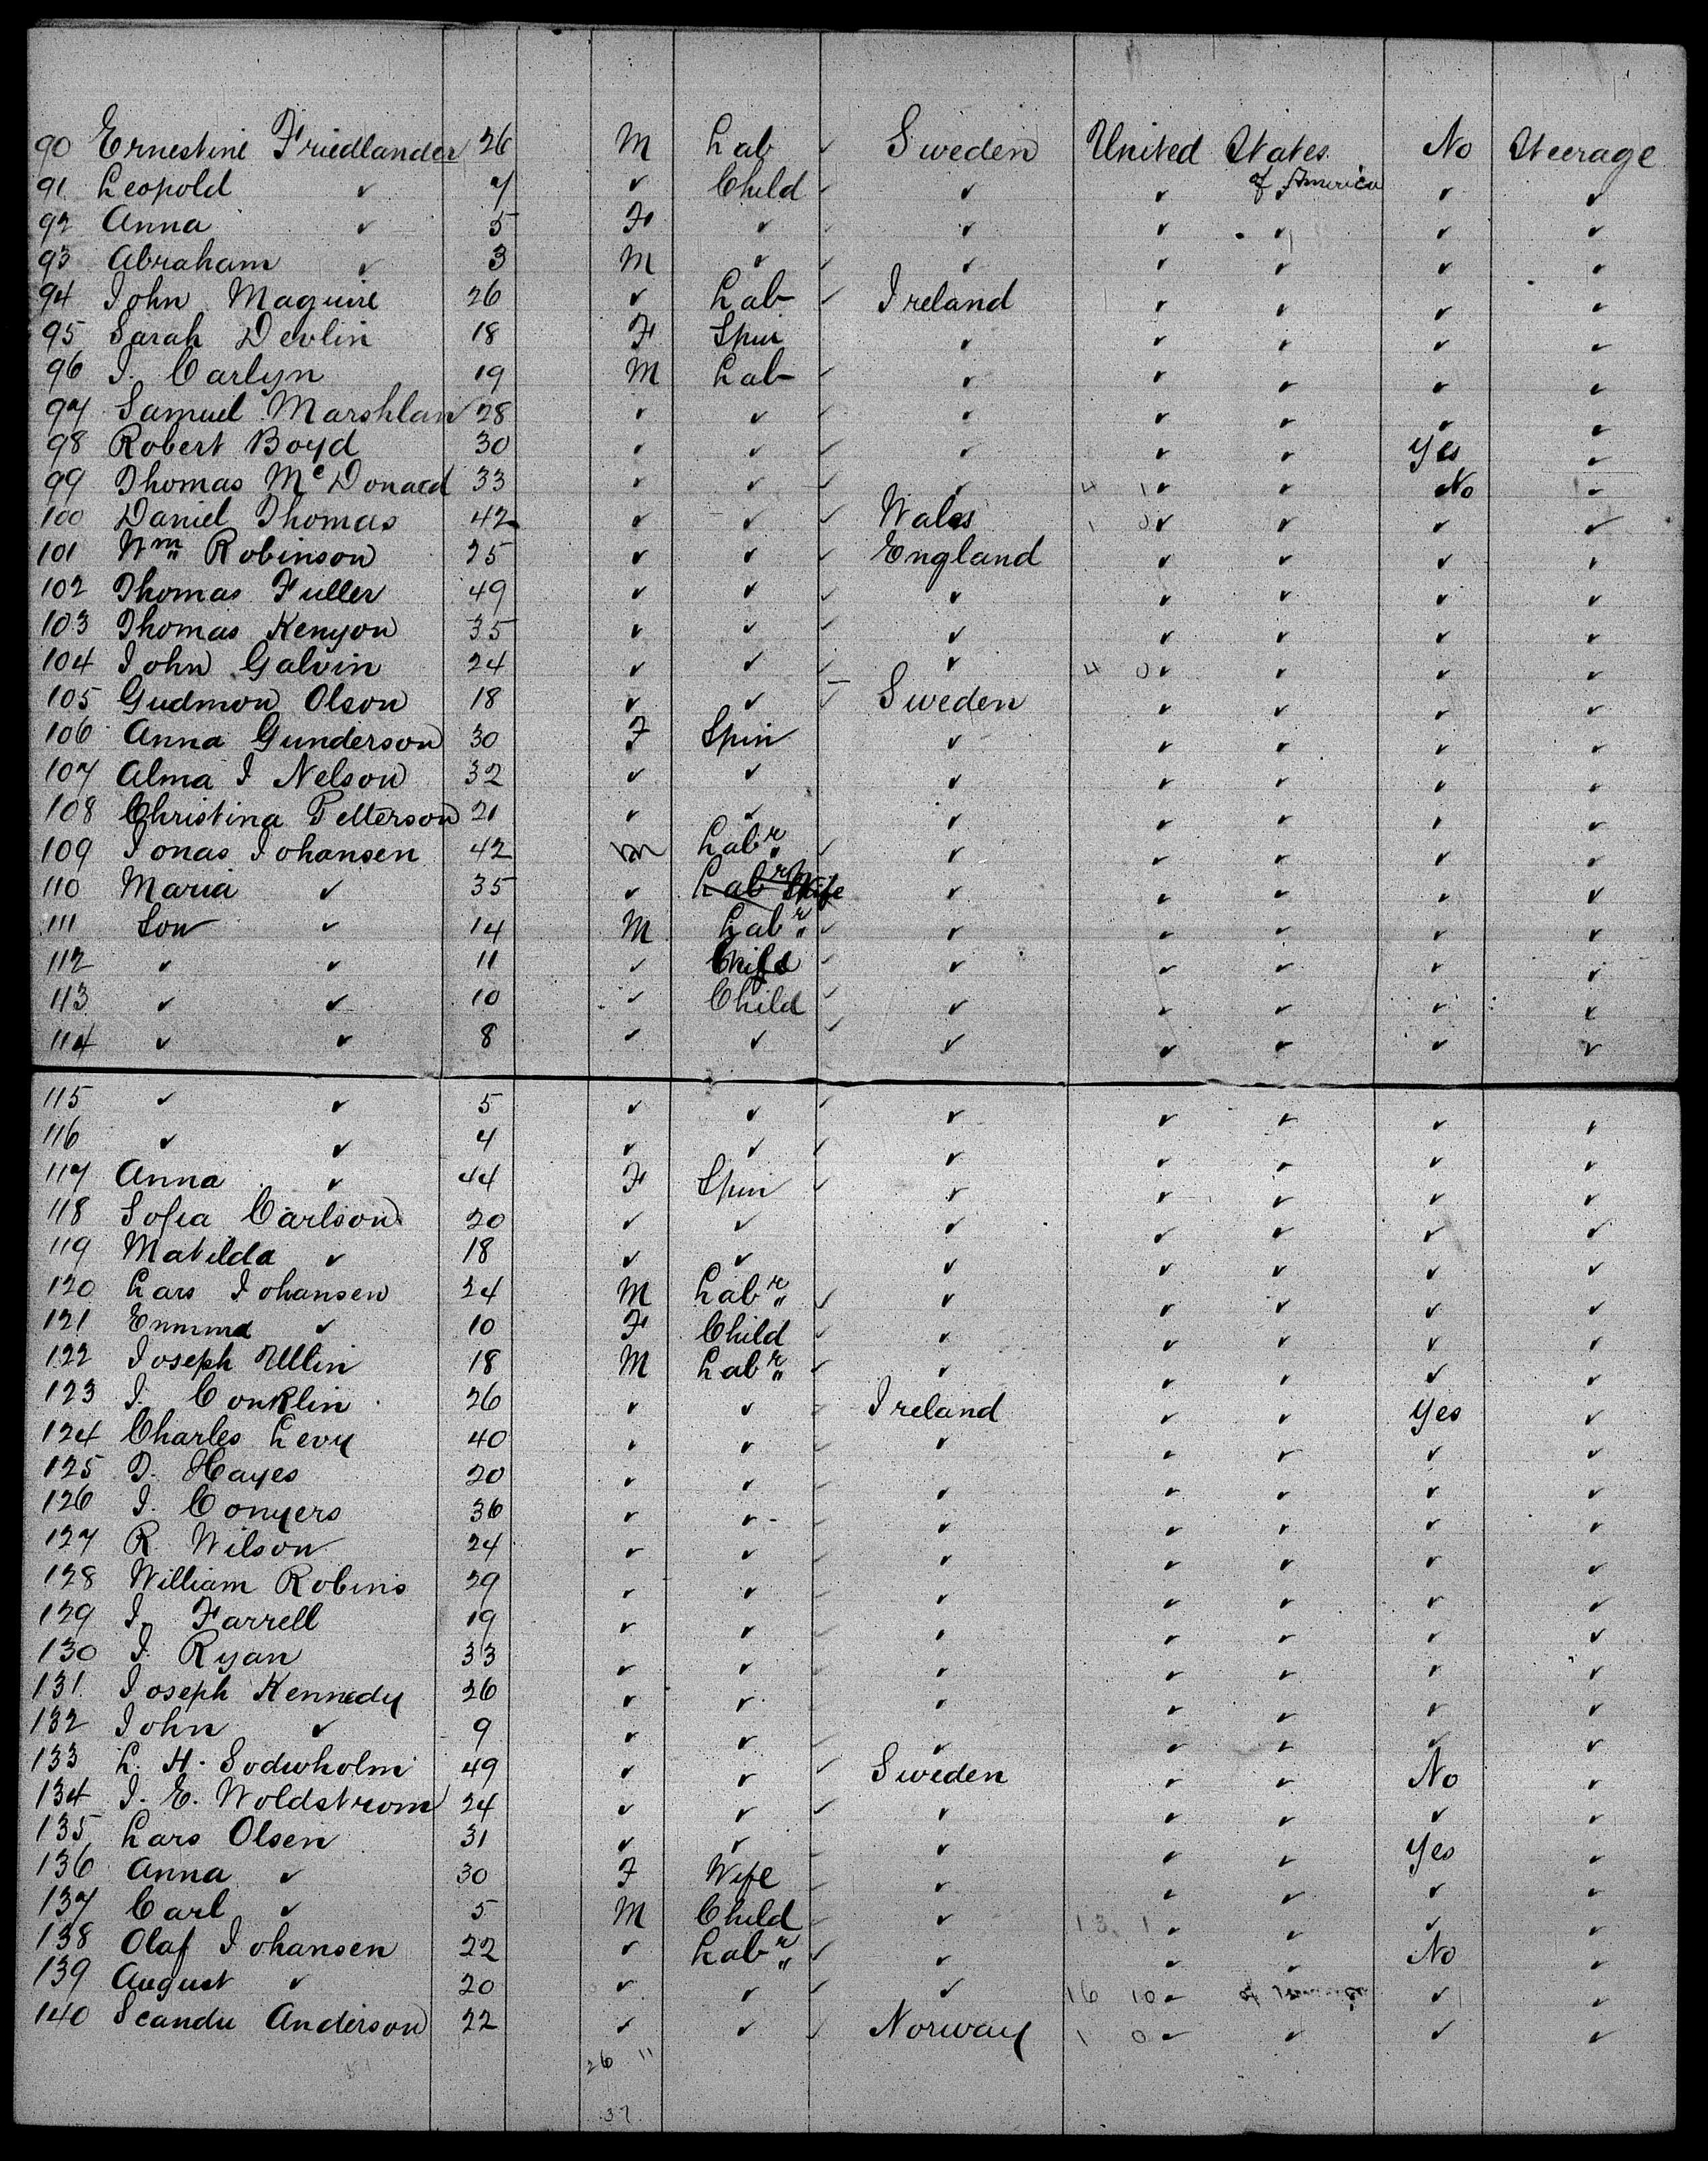 90 Ernestine Friedlander 26 M Lab ✓ Sweden United States No Steerage
of America
91 Leopold ✓ 7 ✓ Child ✓ ✓ ✓ ✓ ✓
92 Anna ✓ 5 F ✓ ✓ ✓ ✓ ✓ ✓ ✓
93 Abraham ✓ 3 M ✓ ✓ ✓ ✓ ✓ ✓ ✓
94 John Maguire 26 ✓ Lab ✓ Ireland ✓ ✓ ✓ ✓
95 Sarah Devlin 18 F Spin ✓ ✓ ✓ ✓ ✓
96 J. Carlyn 19 M Lab ✓ ✓ ✓ ✓ ✓ ✓
97 Samuel Marshlan 28 ✓ ✓ ✓ ✓ ✓ ✓ ✓ ✓
98 Robert Boyd 30 ✓ ✓ ✓ ✓ ✓ ✓ Yes ✓
99 Thomas McDonald 33 ✓ ✓ ✓ ✓ 4 1 ✓ ✓ No ✓
100 Daniel Thomas 42 ✓ ✓ ✓ Wales 1 0 ✓ ✓ ✓ ✓
101 Wm Robinson 25 ✓ ✓ ✓ England ✓ ✓ ✓ ✓
102 Thomas Fuller 49 ✓ ✓ ✓ ✓ ✓ ✓ ✓ ✓
103 Thomas Kenyon 35 ✓ ✓ ✓ ✓ ✓ ✓ ✓ ✓
104 John Galvin 24 ✓ ✓ ✓ ✓ 4 0 ✓ ✓ ✓ ✓
105 Gudmon Olson 18 ✓ ✓ ✓ Sweden ✓ ✓ ✓ ✓
106 Anna Gunderson 30 F Spin ✓ ✓ ✓ ✓ ✓
107 Alma J Nelson 32 ✓ ✓ ✓ ✓ ✓ ✓ ✓
108 Christina Petterson 21 ✓ ✓ ✓ ✓ ✓ ✓ ✓
109 Jonas Johansen 42 M Labr ✓ ✓ ✓ ✓ ✓ ✓
110 Maria ✓ 35 ✓ Labr Wife ✓ ✓ ✓ ✓ ✓
111 Son ✓ 14 M Labr ✓ ✓ ✓ ✓ ✓ ✓
112 ✓ ✓ 11 ✓ Child ✓ ✓ ✓ ✓ ✓ ✓
113 ✓ ✓ 10 ✓ Child ✓ ✓ ✓ ✓ ✓ ✓
114 ✓ ✓ 8 ✓ ✓ ✓ ✓ ✓ ✓ ✓ ✓
115 ✓ ✓ 5 ✓ ✓ ✓ ✓ ✓ ✓ ✓ ✓
116 ✓ ✓ 4 ✓ ✓ ✓ ✓ ✓ ✓ ✓ ✓
117 Anna ✓ 44 F Spin ✓ ✓ ✓ ✓ ✓ ✓
118 Sofia Carlson 20 ✓ ✓ ✓ ✓ ✓ ✓ ✓
119 Matilda ✓ 18 ✓ ✓ ✓ ✓ ✓ ✓ ✓
120 Lars Johansen 24 M Labr ✓ ✓ ✓ ✓ ✓ ✓
121 Emma ✓ 10 F Child ✓ ✓ ✓ ✓ ✓ ✓
122 Joseph Ullin 18 M Labr ✓ ✓ ✓ ✓ ✓ ✓
123 J. Conklin 26 ✓ ✓ ✓ Ireland ✓ ✓ Yes ✓
124 Charles Levy 40 ✓ ✓ ✓ ✓ ✓ ✓ ✓ ✓
125 T. Hayes 20 ✓ ✓ ✓ ✓ ✓ ✓ ✓ ✓
126 J. Conyers 36 ✓ ✓ ✓ ✓ ✓ ✓ ✓ ✓
127 R Wilson 24 ✓ ✓ ✓ ✓ ✓ ✓ ✓ ✓
128 William Robins 29 ✓ ✓ ✓ ✓ ✓ ✓ ✓ ✓
129 J. Farrell 19 ✓ ✓ ✓ ✓ ✓ ✓ ✓ ✓
130 J. Ryan 33 ✓ ✓ ✓ ✓ ✓ ✓ ✓ ✓
131 Joseph Kennedy 26 ✓ ✓ ✓ ✓ ✓ ✓ ✓ ✓
132 John ✓ 9 ✓ ✓ ✓ ✓ ✓ ✓ ✓ ✓
133 L. H. Soderholm 49 ✓ ✓ ✓ Sweden ✓ ✓ No ✓
134 J. E. Woldstrom 24 ✓ ✓ ✓ ✓ ✓ ✓ ✓ ✓
135 Lars Olsen 31 ✓ ✓ ✓ ✓ ✓ ✓ Yes ✓
136 Anna ✓ 30 F Wife ✓ ✓ ✓ ✓ ✓ ✓
137 Carl ✓ 5 M Child ✓ ✓ 13 1 ✓ ✓ ✓ ✓
138 Olaf Johansen 22 ✓ Labr ✓ ✓ ✓ ✓ No ✓
139 August ✓ 20 ✓ ✓ ✓ ✓ 16 10 ✓ ✓ ✓
140 Scandu Anderson 22 ✓ ✓ ✓ Norway 1 0 ✓ ✓ ✓ ✓
26 11
37